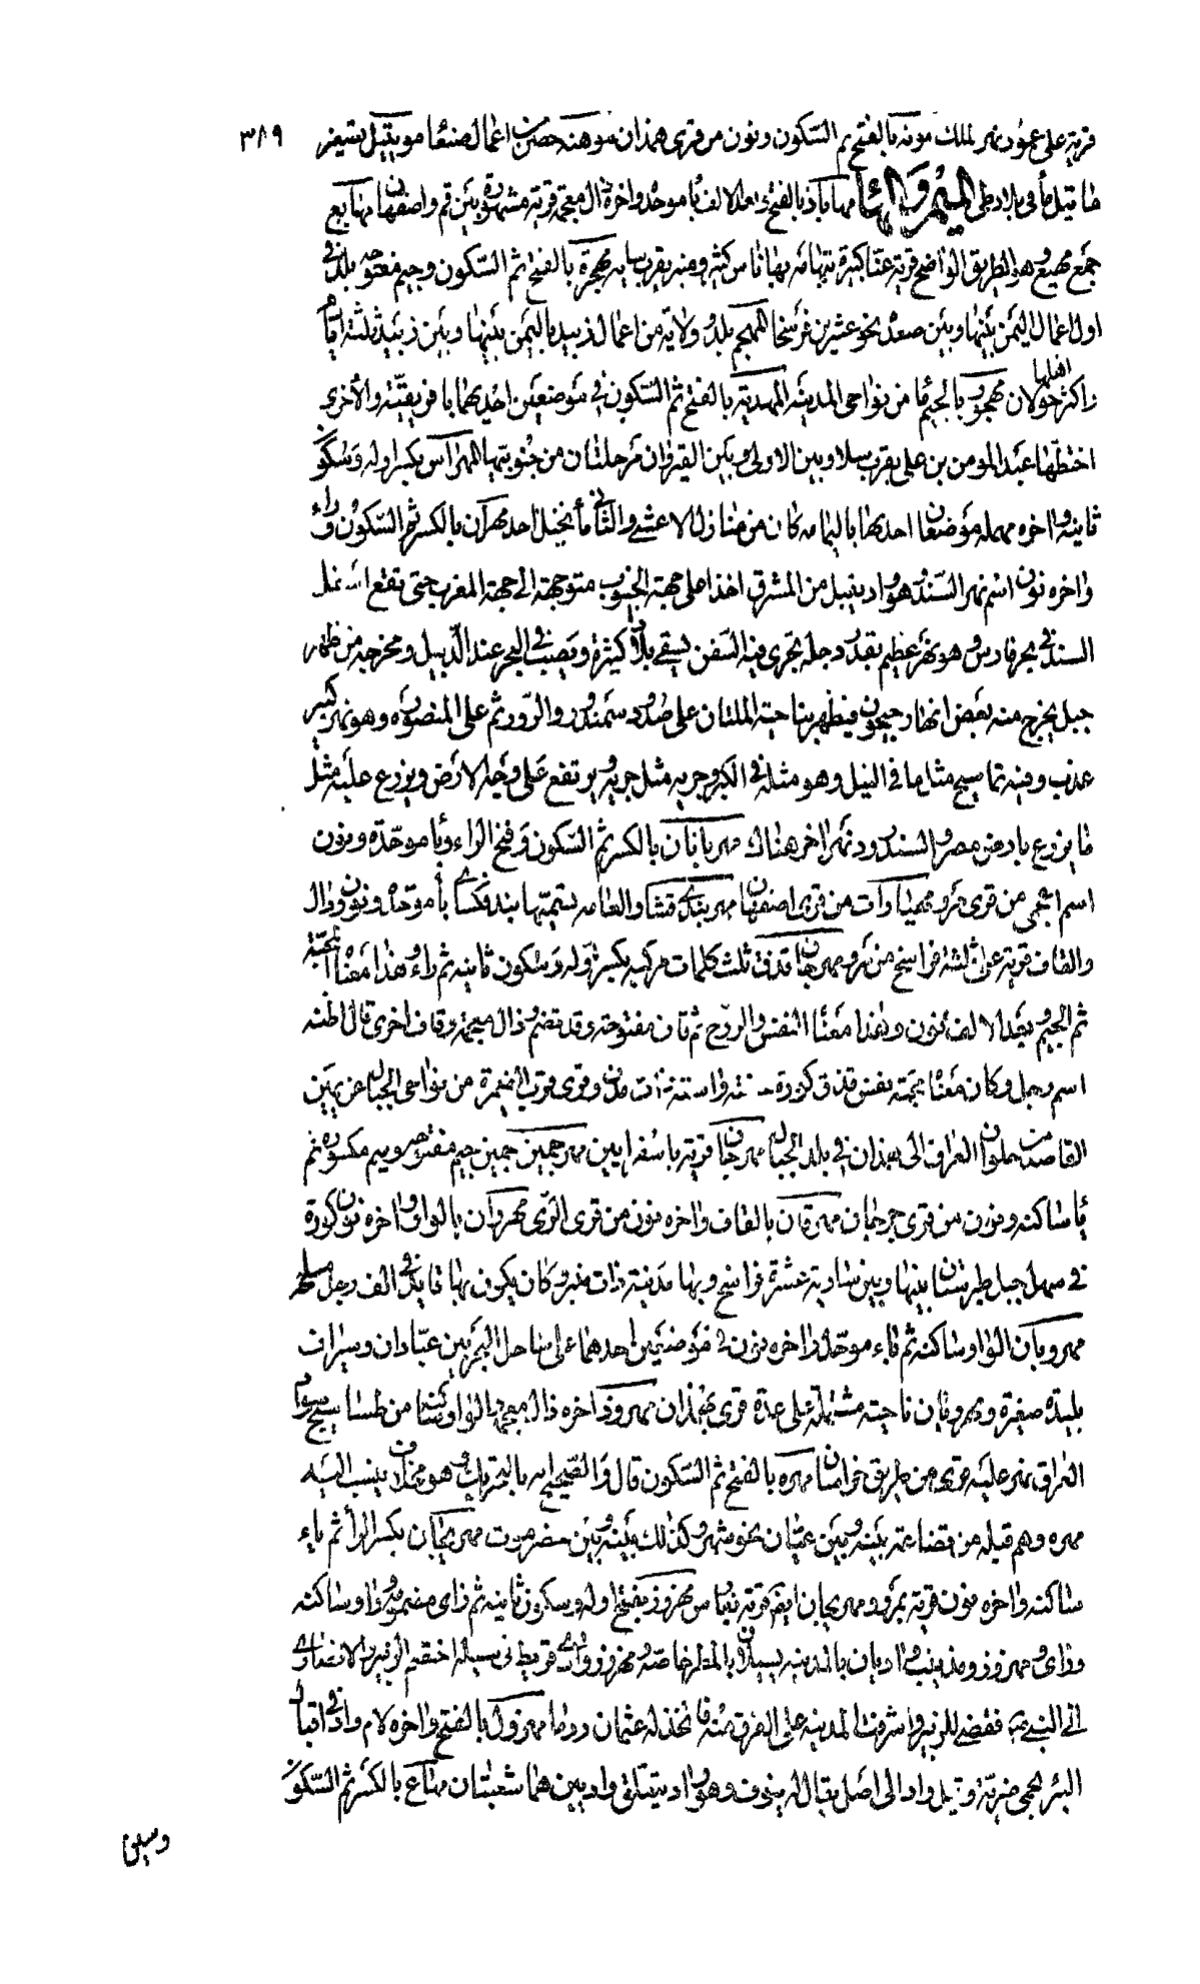 قرية على عمود نهر الملك مونه بالفتح ثم السكون ونون من قرى همذان موهنه حصن من اعمال صنعا مويتيل بتيغر ٣٨٩
ما قيل ما في بلاد طي الميم والهاء مهاباذ بالفتح وبعد الالف با موحدة واخره ذال معجمة قرية مشهورة بين قم واصفهان مهايع
جمع مهيع وهو الطريق الواضح قرية غنا كبيرة بتهامه بها ناس كثير ومنبر بقرب سايه مهجرة بالفتح ثم السكون وجيم مفتوحه بلد في
اول اعمال اليمن بينها وبين صعدة نحو عشرين فرسخا المهجم بلد وولاية من اعمال زبيد باليمن بينها وبين زبيد ثلثة ايام
واكثر اهلها خولان مهجور بالجيم ما من نواحي المدينه المهدية بالفتح ثم السكون في موضعين احديهما بافريقيّة والاخرى
اختطها عبد المومن بن على بقرب سلا وبين الاولى وبين القيروان مرحلتان من جنوبيها المهراس بكسر اوله وسكون
ثانيه واخره مهمله موضعان احديهما باليمامه كان من منازل الاعشى والثاني ما بجبل احد مهران بالكسر ثم السكون وراء
واخره نون اسم نهر السند وهو واد يقبل من المشرق اخذا على جهة الجنوب متوجهة الى جهة المغرب حتى تقع اسفل
السند في بحر فارس وهو نهر عظيم بقدر دجلة تجرى فيه السفن ليسقى بلادا كثيرة ويصب في البحر عند الدّيبل ومخرجه من ظهر
جبل يخرج منه بعض انهار جيحون فيظهر بناحية الملتان على حدود سمندور والرّور ثم على المنصوره وهو نهر كبير
عذب وفيه تماسيح مثل ما في النيل وهو مثله في الكبر وجريه مثل جريه ويرتفع على وجه الارض ويزرع عليه مثل
ما يزرع بارض مصر والسندرود نهر اخر هناك مهربانان بالكسر ثم السكون وفتح الراء وبا موحّدة ونون
اسم اعجمى من قرى مرو مهرباوات من قرى اصفهان مهربندقشا والعامه تسميها بندكشاى با موحدة ونون ودال
والقاف قرية على ثلثة فراسخ من مرو مهرجان قذق ثلث كلمات مركبه بكسر اوله وسكون ثانيه ثم راء وهذا معناه المحبة
ثم الجيم وبعد الالف نون وهذا معناه النفس والروح ثم قاف مفتوحة وقد تضم وذال معجمة وقاف اخرى قال اظنه
اسم رجل وكان معناه محبة نفس قذق كورة حسنه واسعه ذات مدن وقرى قرب الصيمرة من نواحى الجبال عن يمين
القاصد من حلوان العراق الى همذان في بلد الجبال مهرجان قرية باسفرايين مهرجمين جمين جيم مفتوحه وميم مكسوره ثم
يا ساكنه ونون من قرى جرجان مهرقان بالقاف واخره نون من قرى الرّى مهروان بالواو واخره نون كورة
في سهل جبل طبرستان بينها وبين سارية عشرة فراسخ وبها مدينة ذات منبر وكان يكون بها قايد في الف رجل مسلحه
مهروبان الواو ساكنه ثم باء موحدة واخره نون في موضعين احدهما على ساحل البحر بين عبّادان وسيراف
بليدة صغيرة ومهروبان ناحية مشتملة على عدة قرى بهمذان مهروذ اخره ذال معجمه الواو ساكنه من طساسيج سواد
العراق نهر عليه قرى من طريق خراسان مهره بالفتح ثم السكون قال والصّحيح انه بالتحريك وهو مخلاف ينسب اليه
مهره وهم قبيله من قضاعة بينه وبين عمان نحو شهر وكذلك بينه وبين حضرموت مهريجان بكسر الراء ثم ياء
ساكنه واخره نون قرية بمرو ومهريجان ايضا قرية بفارس مهزور بفتح اوله وسكون ثانيه ثم زاى مضمومه واو ساكنه
وراى ومهزور ومذينب واديان بالمدينه يسيلان بالمطر خاصّة ومهزور وادى قريظه في سيله اختصم الزبير والانصارى
الى النبى فقضى للزبير واشرفت المدينه على الغرق منه فاتخذ له عثمان ردما مهزول بالفتح واخره لام واد في اقبال
البئر بحمى ضريّة وقيل واد الى اصل جبل يقال له ينوف وهو واد يتلقى واديين هما شعبتان مهساع بالكسر ثم السّكون
وسين